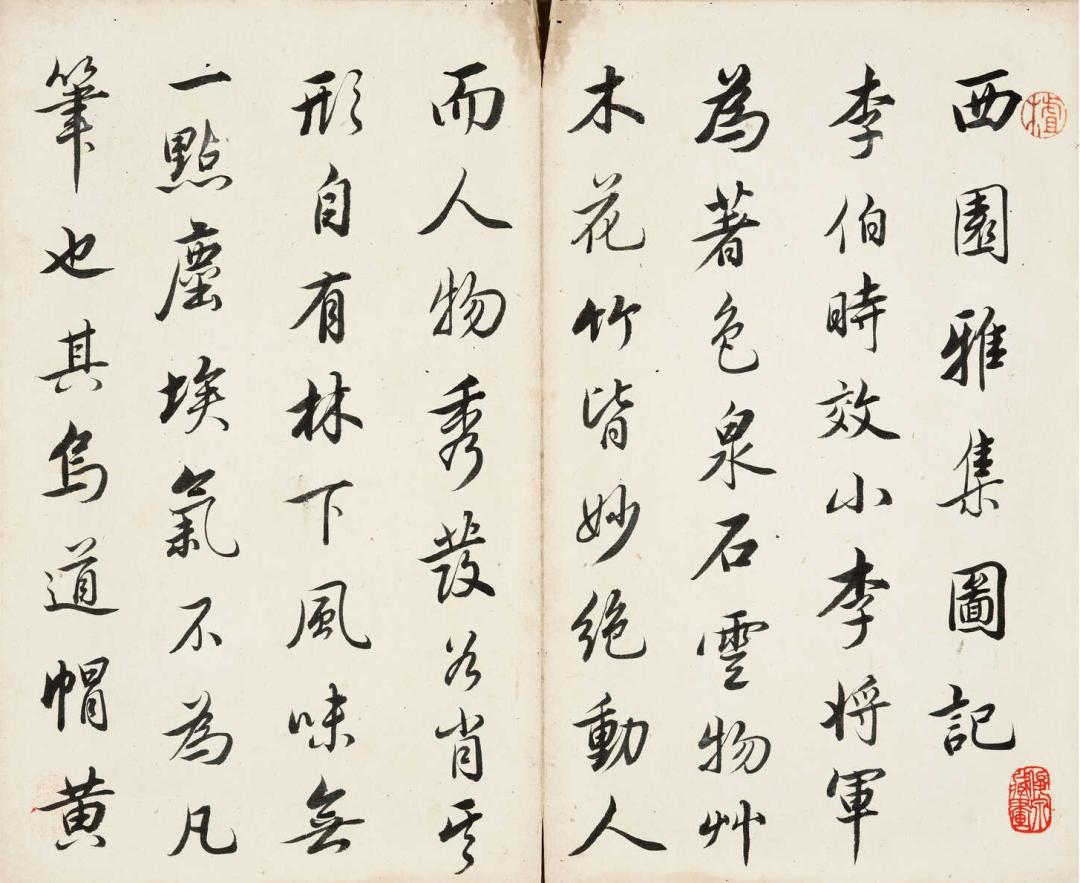 西園雅集圖記
李伯時效小李将軍
為著色泉石雲物艸
木花竹皆妙絶動人
而人物秀發各肖其
形自有林下風味無
一點塵埃氣不為凡
筆也其烏道帽黄